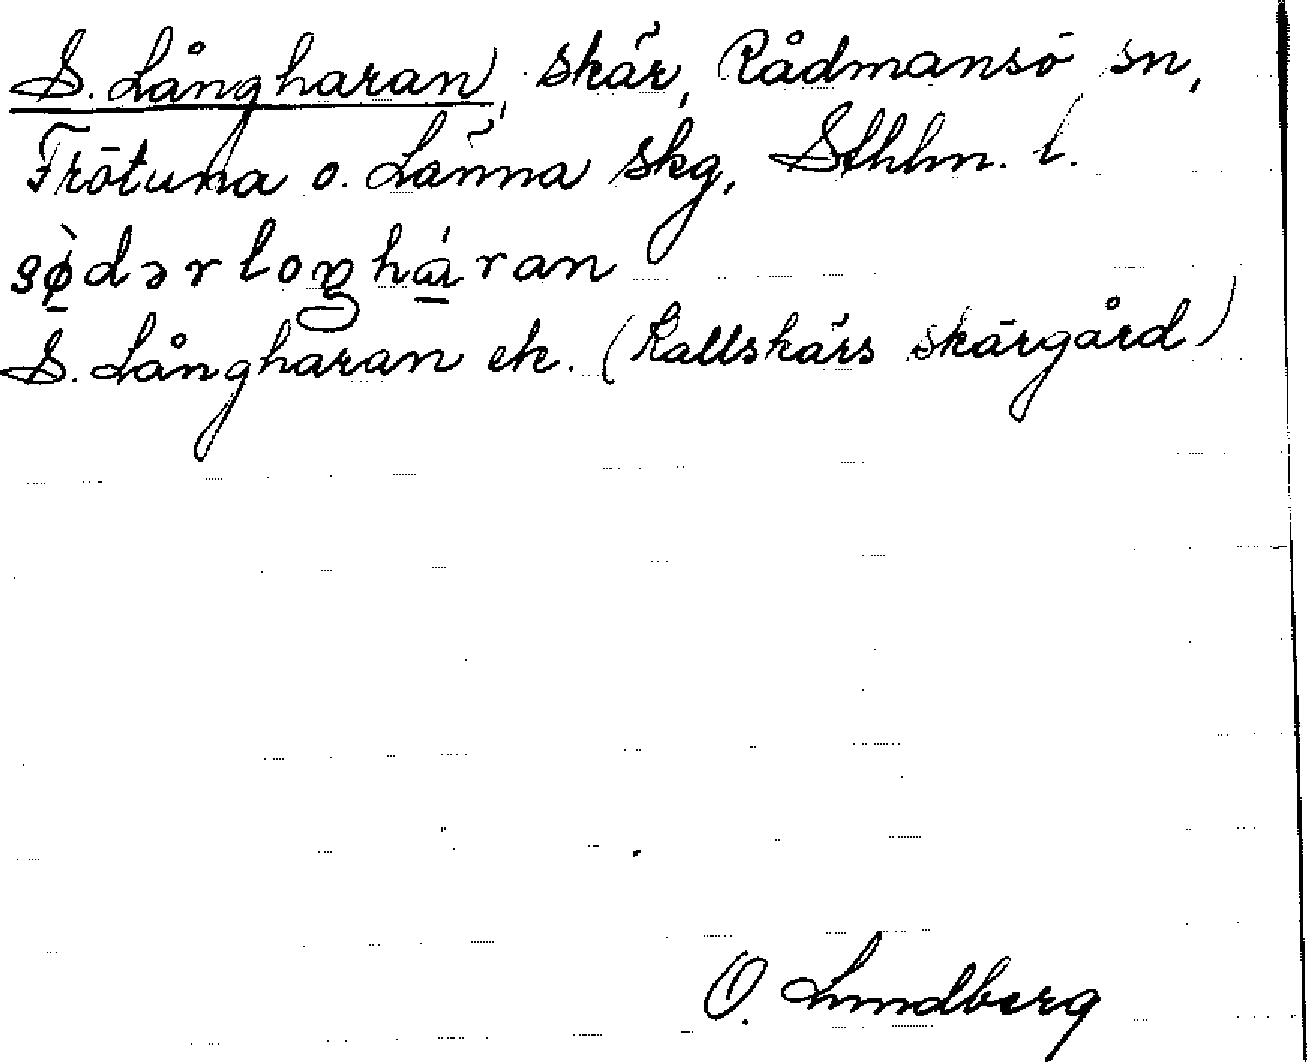 S. Långharan, skär, Rådmansö sn,
Frötuna o. Länna skg, Sthlm. l.
sø̀dərloŋháran
S. Långharan ek. (Kallskärs skärgård)
O. Lundberg